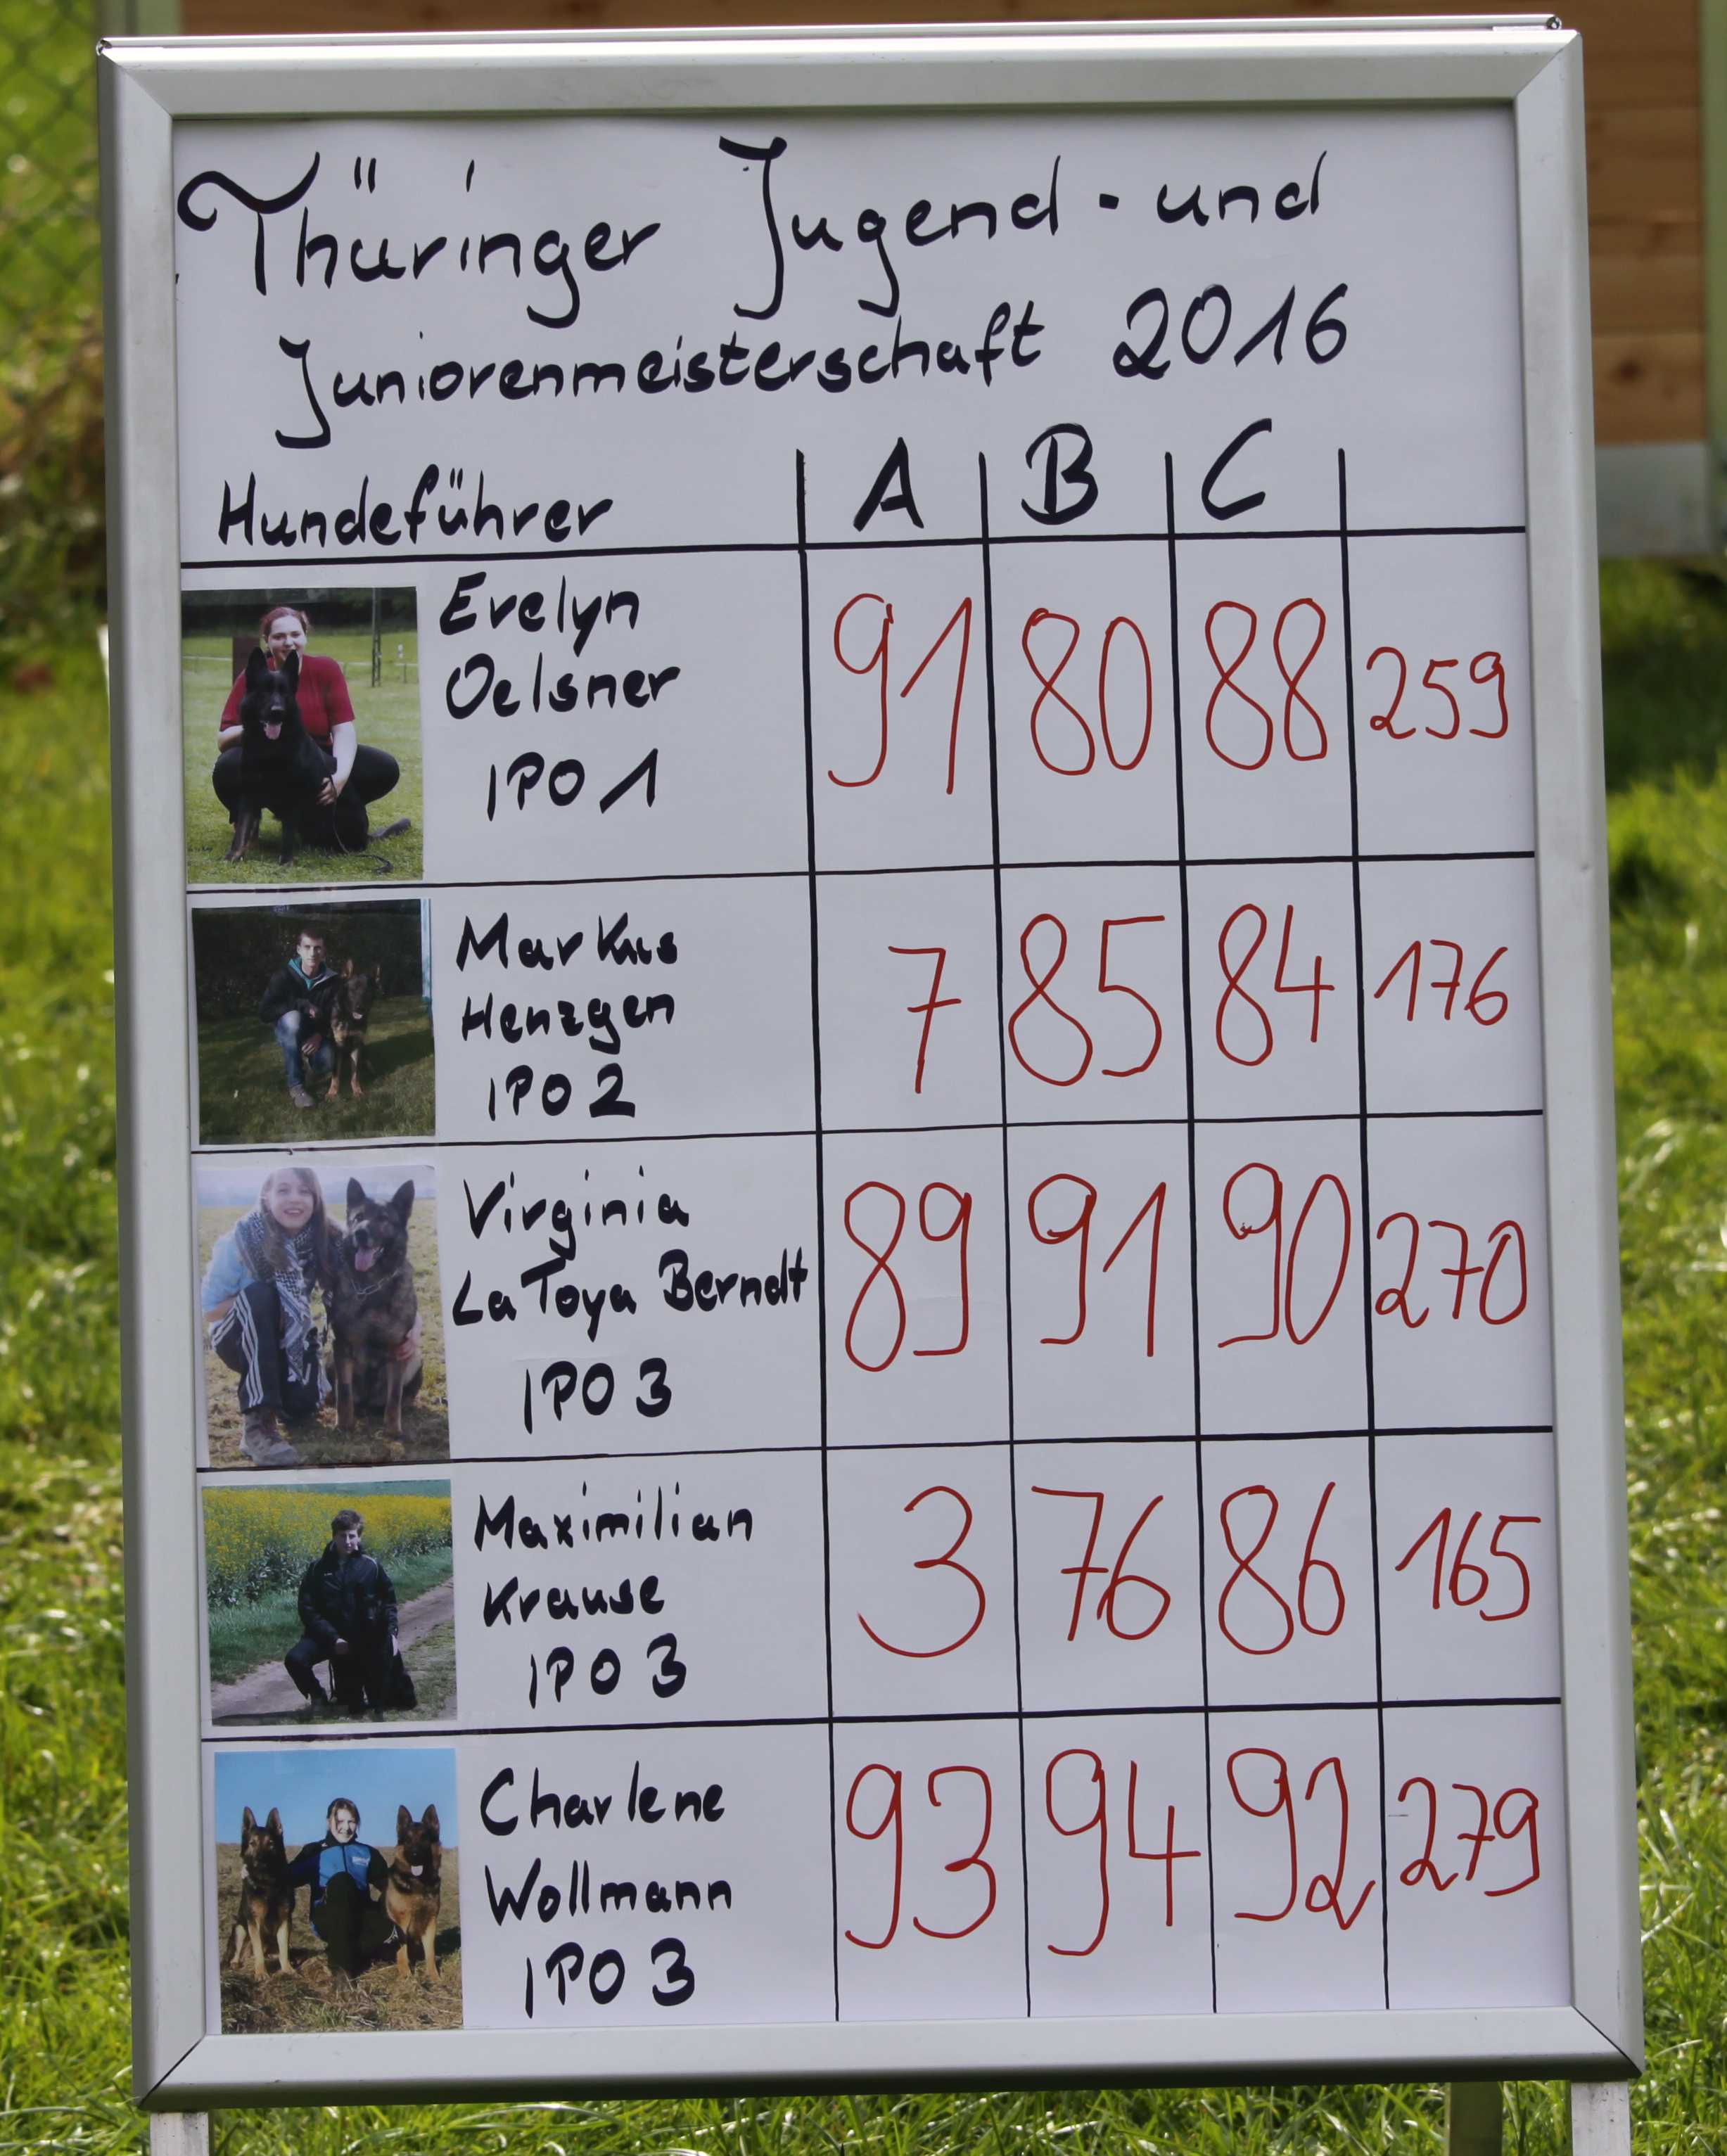 Thüringer Jugend- und
Juniorenmeisterschaft 2016
Hundeführer A B C
Evelyn
Oelsner
IPO 1
91 80 88 259
Markus
Henzgen
IPO 2
7 85 84 176
Virginia
La Toya Berndt
IPO 3
89 91 90 270
Maximilian
Krause
IPO 3
3 76 86 165
Charlene
Wollmann
IPO 3
93 94 92 279